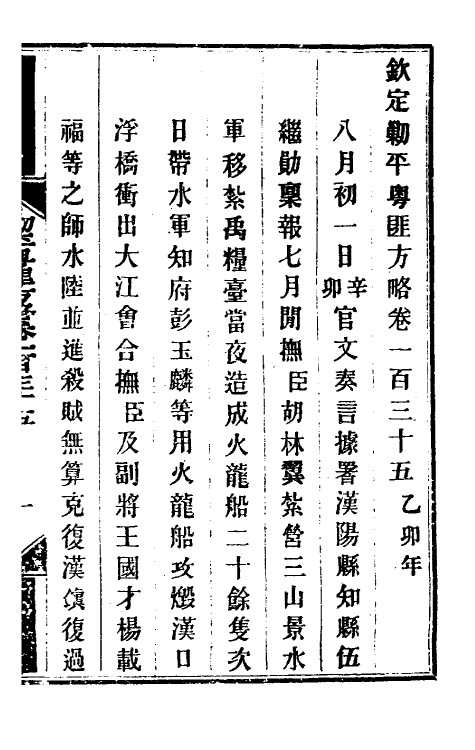 欽定勦平粤匪方略卷一百三十五乙卯年
八月初一日辛卯官文奏言據署漢陽縣知縣伍
繼勛稟報七月閒撫臣胡林翼紮營三山景水
軍移紮禹糧臺當夜造成火龍船二十餘隻次
日帶水軍知府彭玉麟等用火龍船攻燬漢口
浮橋衝出大江會合撫臣及副將王國才楊載
福等之師水陸並進殺賊無算克復漢鎮復過
勦平粤匪方略卷一百三十五
一